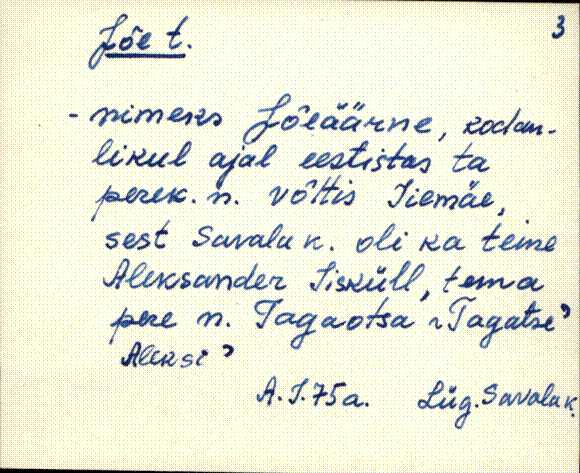 3
Jõe t.
- nimeks Jõeäärne, kodan-
likul ajal eestistas ta
perek. n. võttis Iiemäe,
sest Savala k. oli ka teine
Aleksander Iisküll, tema
pere n. Tagaotsa "Tagatse"
Aleksi"
A.I. 75 a. Lüg. Savala k.